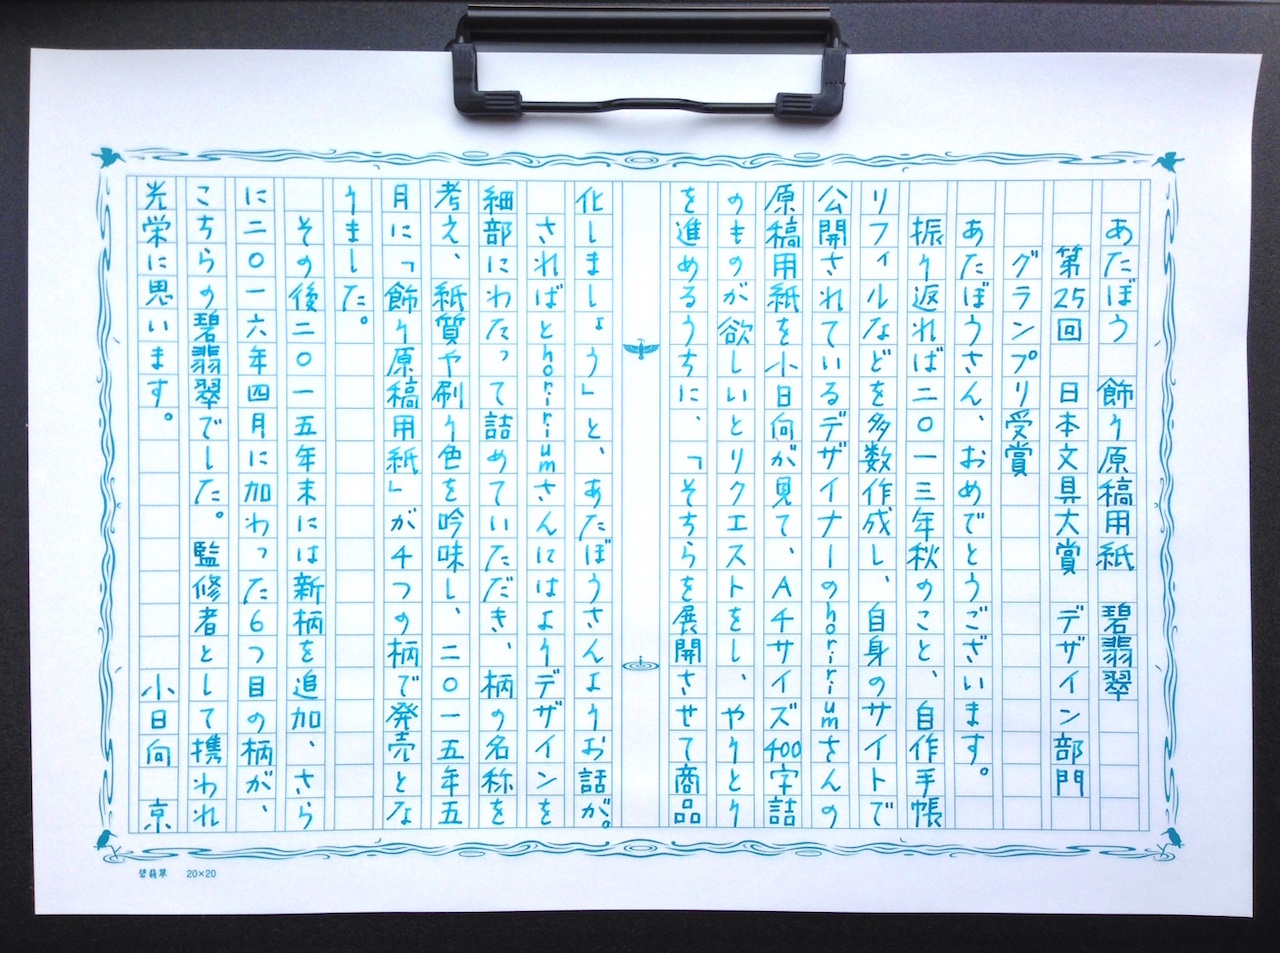 あたぼう　飾り原稿用紙　碧翡翠
第25回　日本文具大賞　デザイン部門
グランプリ受賞
あたぼうさん、おめでとうございます。
振り返れば二〇一三年秋のこと、自作手帳
リフィルなどを多数作成し、自身のサイトで
公開されているデザイナーのhoririumさんの
原稿用紙を小日向が見て、A4サイズ400字詰
のものが欲しいとリクエストをし、やりとり
を進めるうちに、「そちらを展開させて商品
化しましょう」と、あたぼうさんよりお話が。
さればとhoririumさんにはよりデザインを
細部にわたって詰めていただき、柄の名称を
考え、紙質や刷り色を吟味し、二〇一五年五
月に「飾り原稿用紙」が4つの柄で発売とな
りました。
その後二〇一五年末には新柄を追加、さら
に二〇一六年四月に加わった6つ目の柄が、
こちらの碧翡翠でした。監修者として携われ
光栄に思います。　小日向　京
碧翡翠　20×20